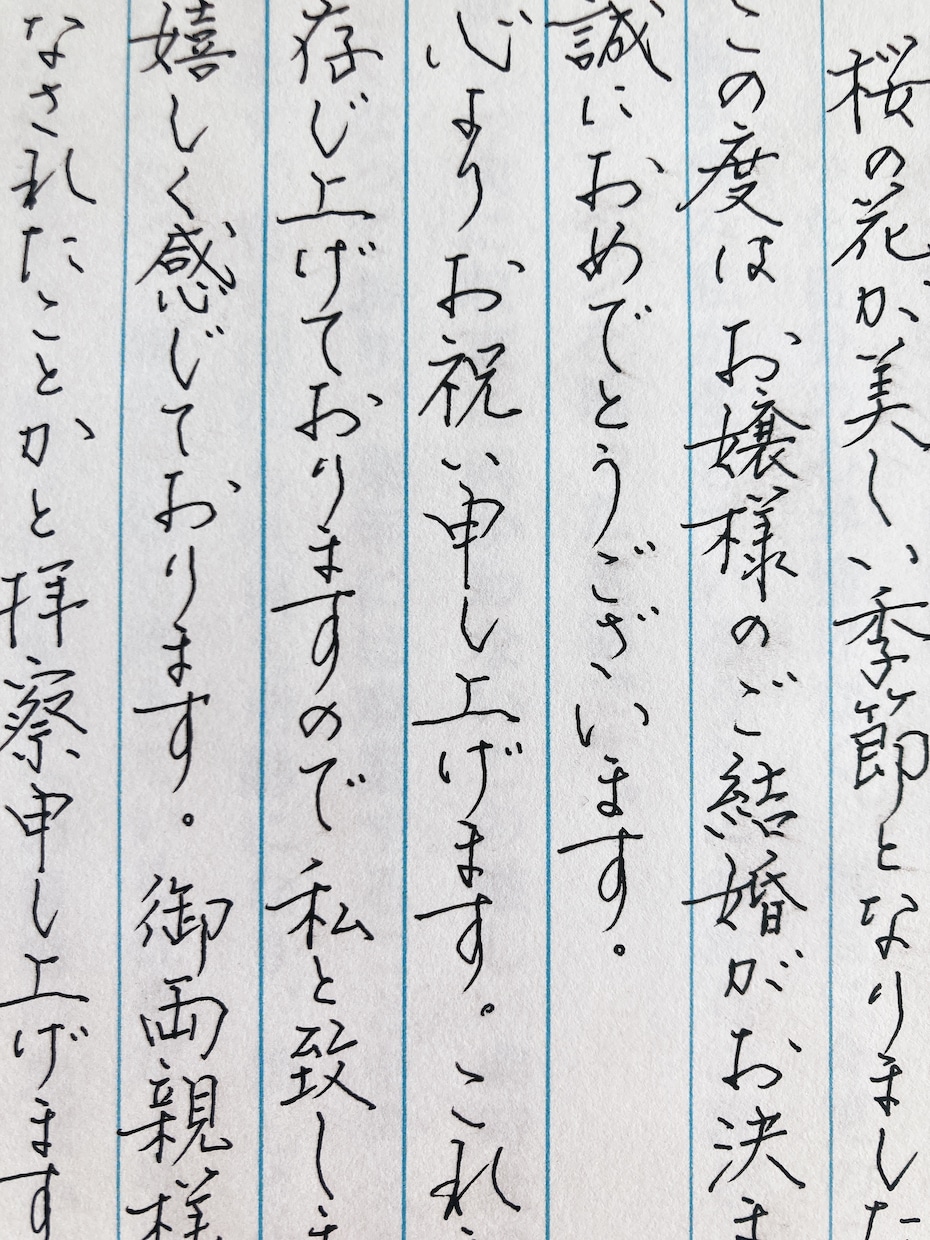 桜の花が美しい季節となりました
この度はお嬢様のご結婚がお決ま
誠におめでとうございます。
心よりお祝い申し上げます。これ
存じ上げておりますので私と致しま
嬉しく感じております。御両親様
なされたことかと拝察申し上げます